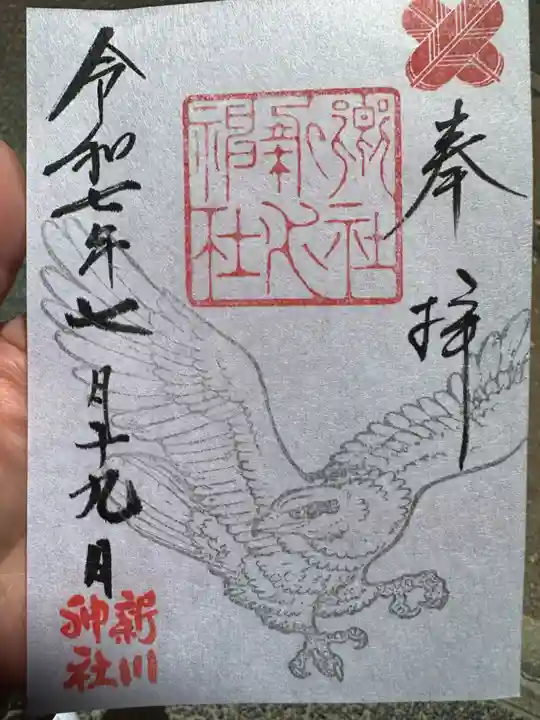 奉拝
郷社
新川
神社
令和七年七月十九日
新川
神社